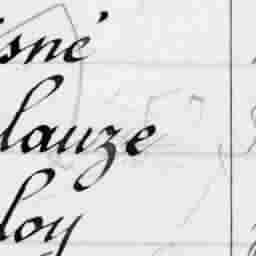 isné
lauze
loy